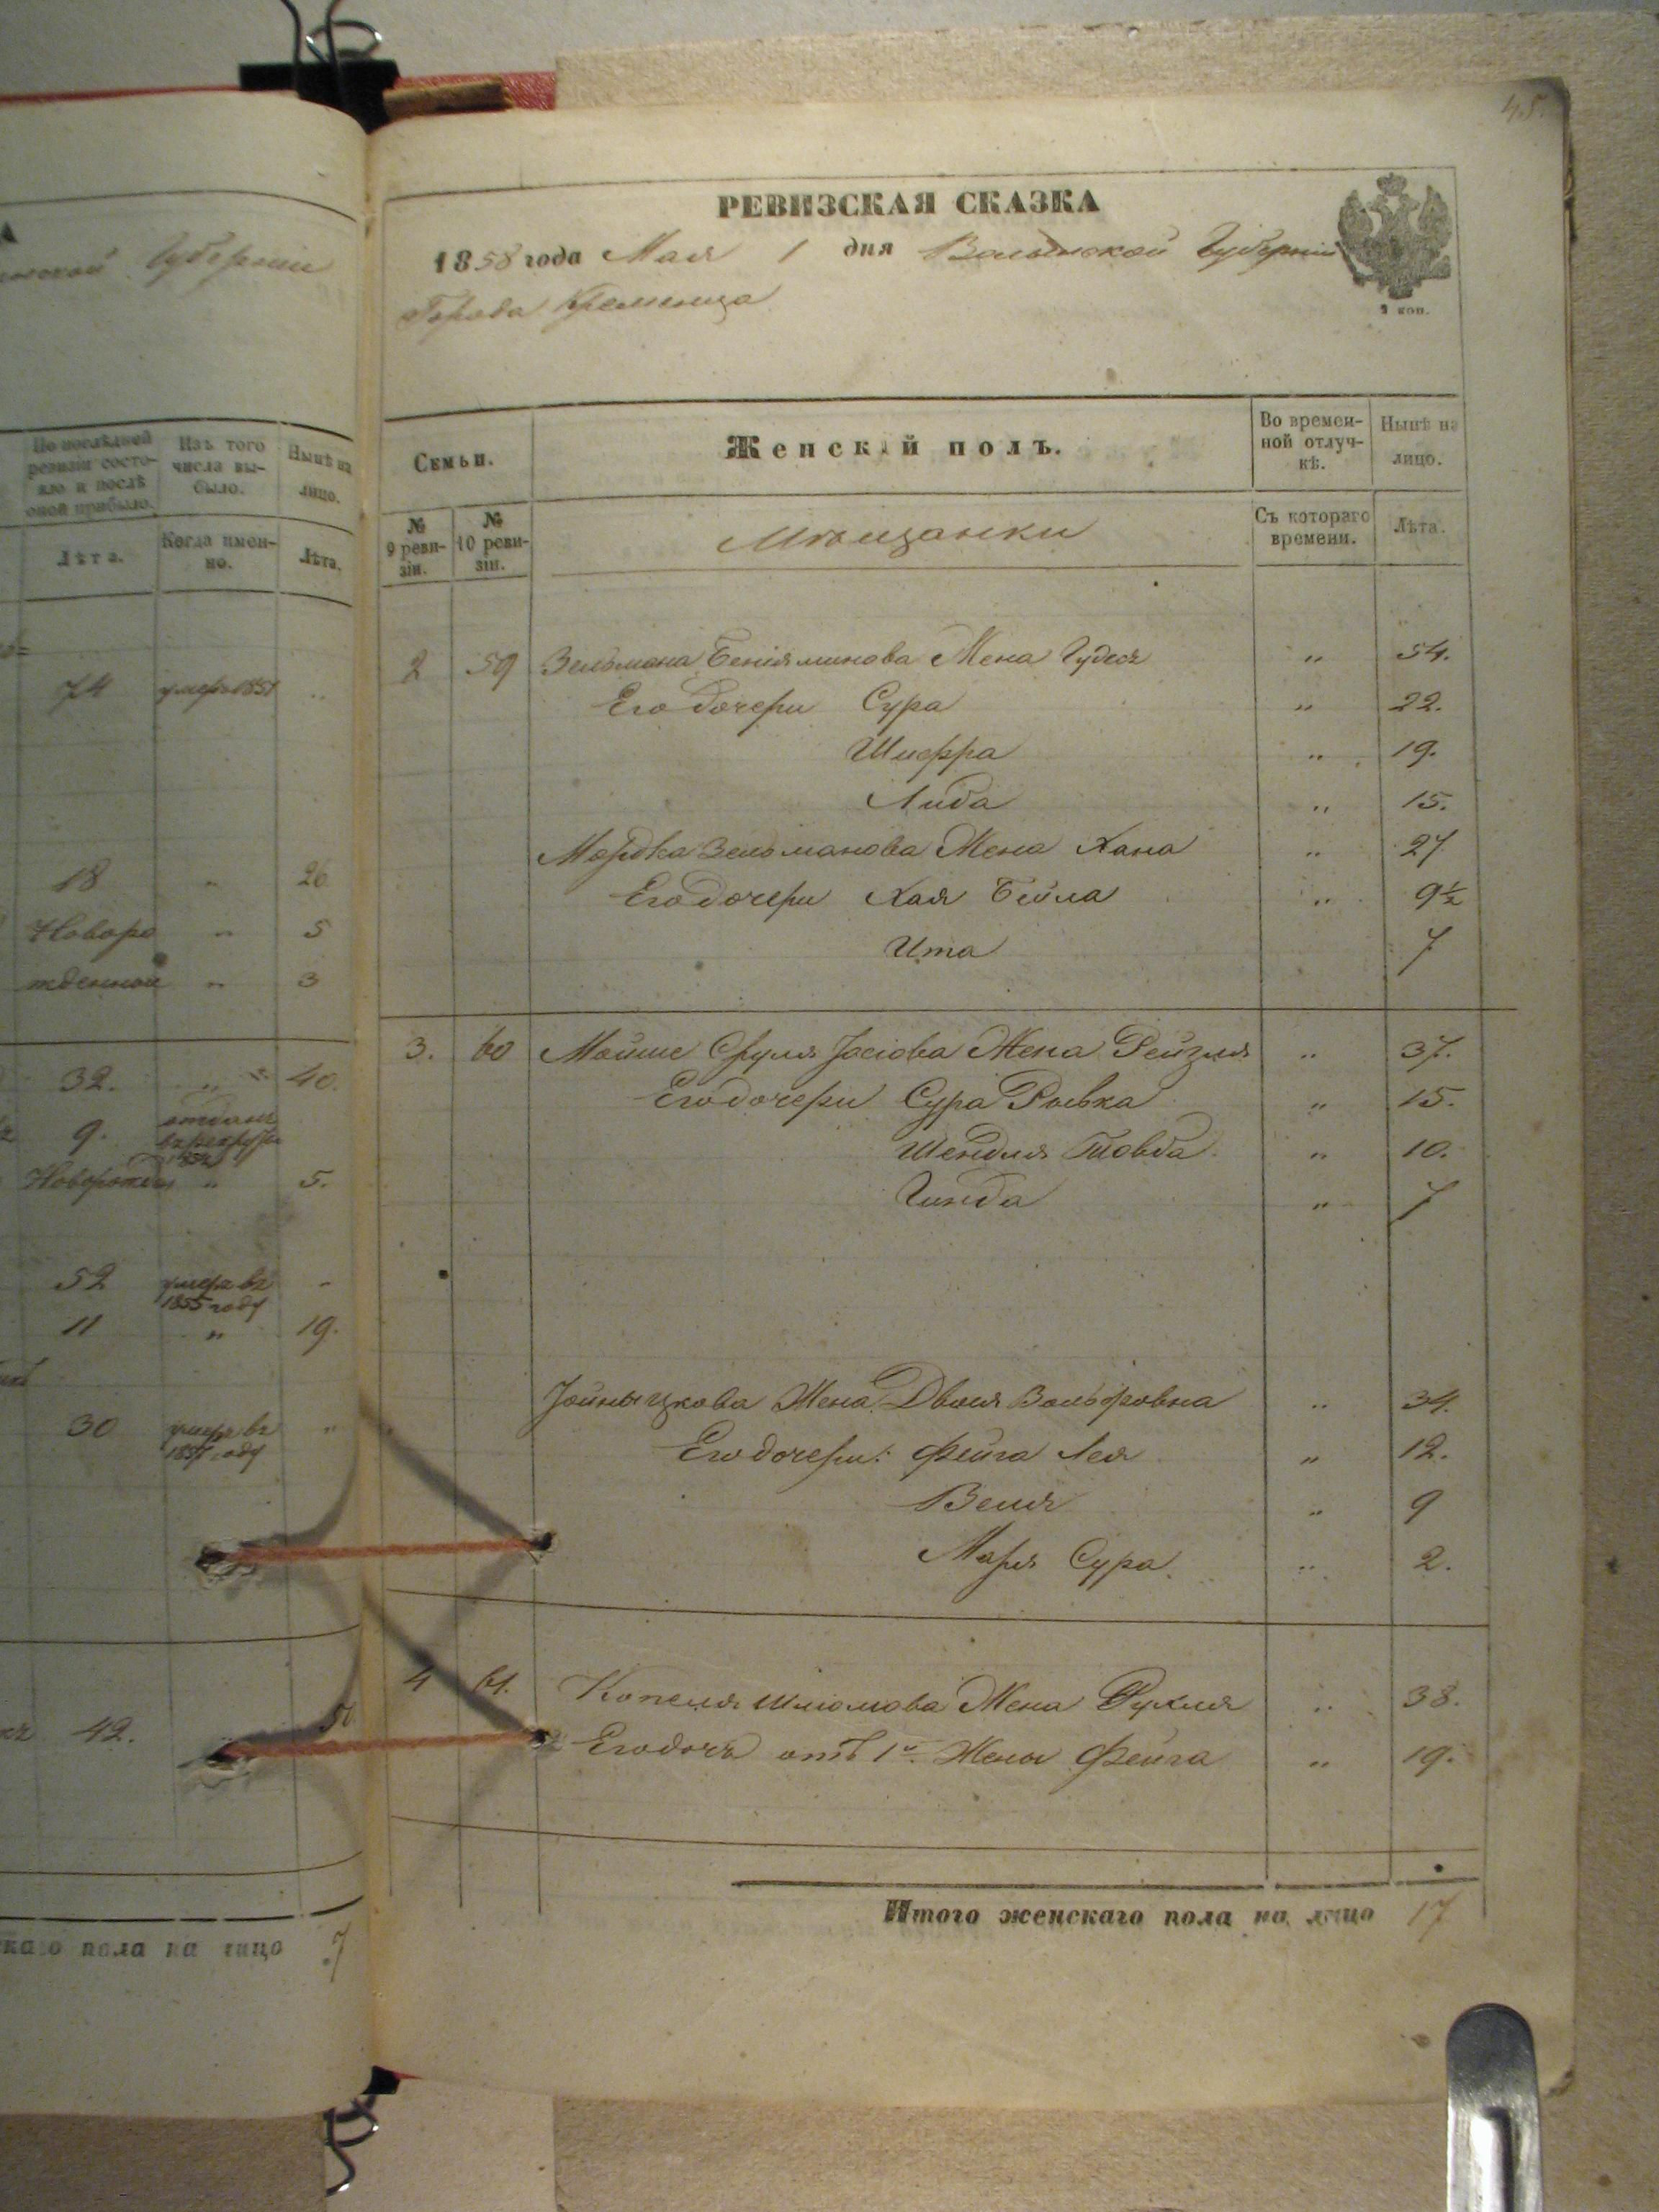 45.
РЕВИЗСКАЯ СКАЗКА
1858 года Мая 1 дня Волынской Губерніи
Города Кременца
2 коп.
Семьи.
Женскій полъ.
Во времен-
ной отлуч-
кѣ.
Нынѣ на
лицо.
№
9 реви-
зіи.
№
10 реви-
зіи.
Мѣщанки
Съ котораго
времени.
Лѣта.
2 59 Зельмана Беніяминова Жена Гудесъ " 54.
Его дочери Сура " 22.
Шифра " 19.
Лида " 15.
Мордка Зельманова Жена Хана " 27
Его дочери Хая Бейла " 9½
Ита 7
3. 60 Мойше Сруля Іосіова Жена Рейзля " 37.
Его дочери Сура Рывка " 15.
Шендля Товба " 10.
Гинда " 7
Жена Двося Вольфовна " 34.
Его дочери: Фейга Лея " 12.
Веля " 9
Маря Сура " 2.
4 61. Копеля Шліомова Жена Рухля " 38.
Его дочь отъ 1й Жены Фейга " 19.
Итого женскаго пола на лицо 17
Губерніи
По послѣдней
ревизіи состо-
яло и послѣ
оной прибыло.
Изъ того
числа вы-
было.
Нынѣ на
лицо.
Лѣта.
Когда имен-
но.
Лѣта.
74 умеръ 1851 "
18 " 26
Новоро " 5
жденной " 3
32. " 40.
9. отданъ
въ рекруты
Новорожден " 5.
52 умеръ въ
1855 году
11 " 19.
30 умеръ въ "
году
42. 50
скаго пола на лицо 7